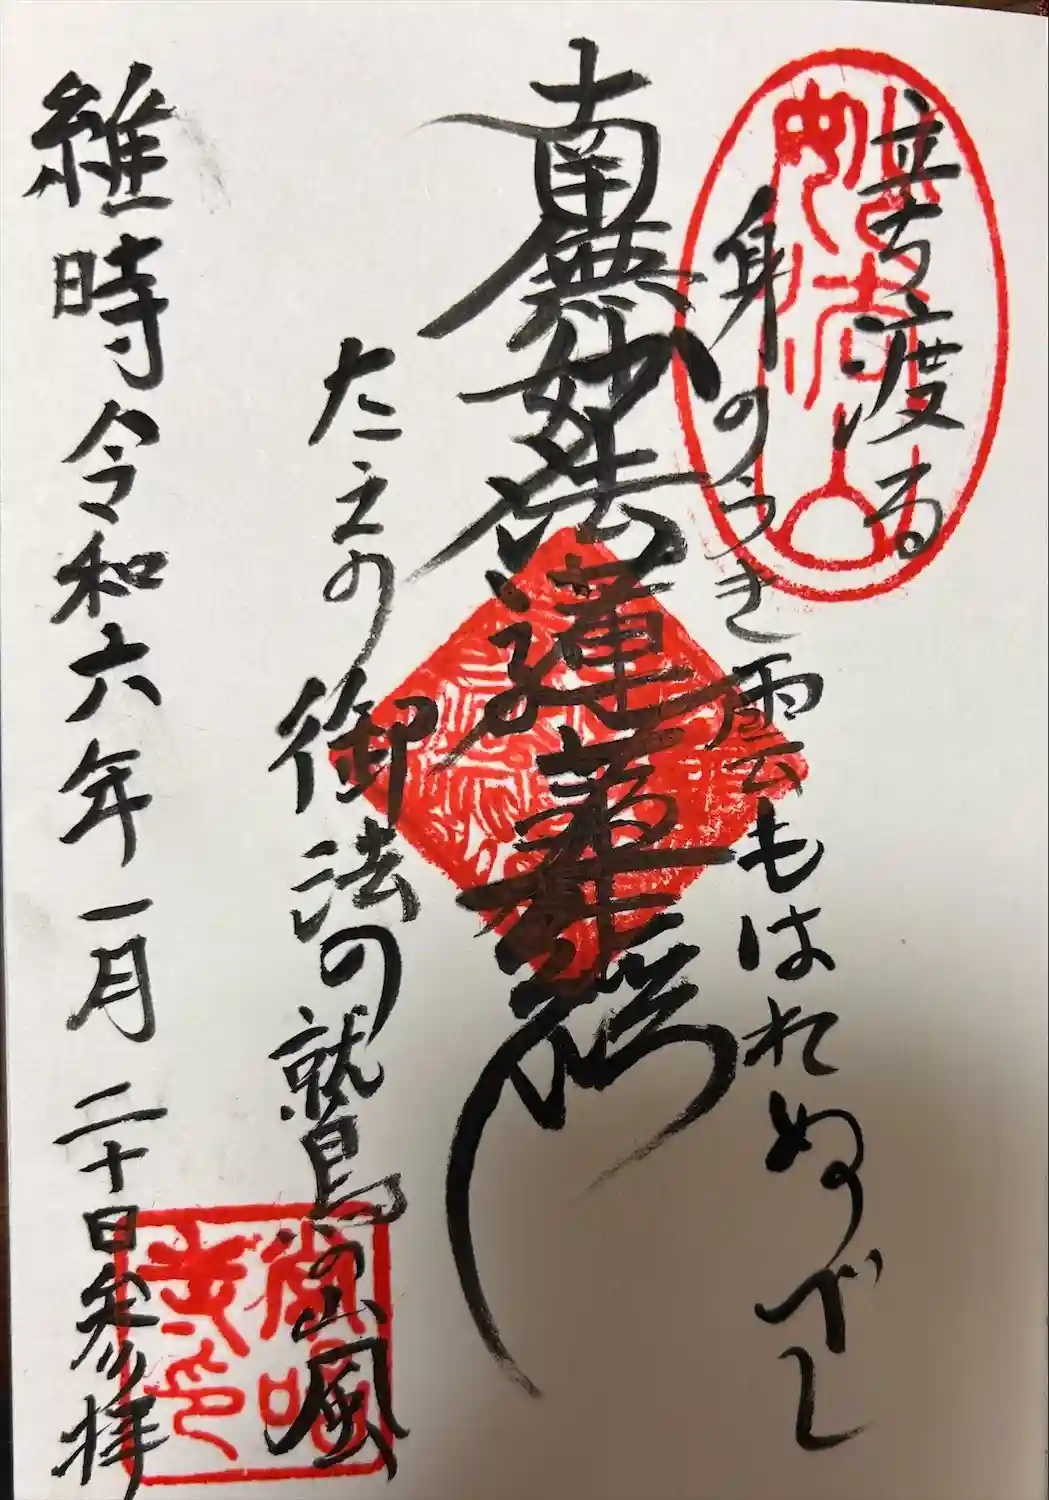 立ち渡る
身のうき雲もはれぬべし
南無妙法蓮華経
たえの御法の鷲の山風
維時令和六年一月二十日参拝